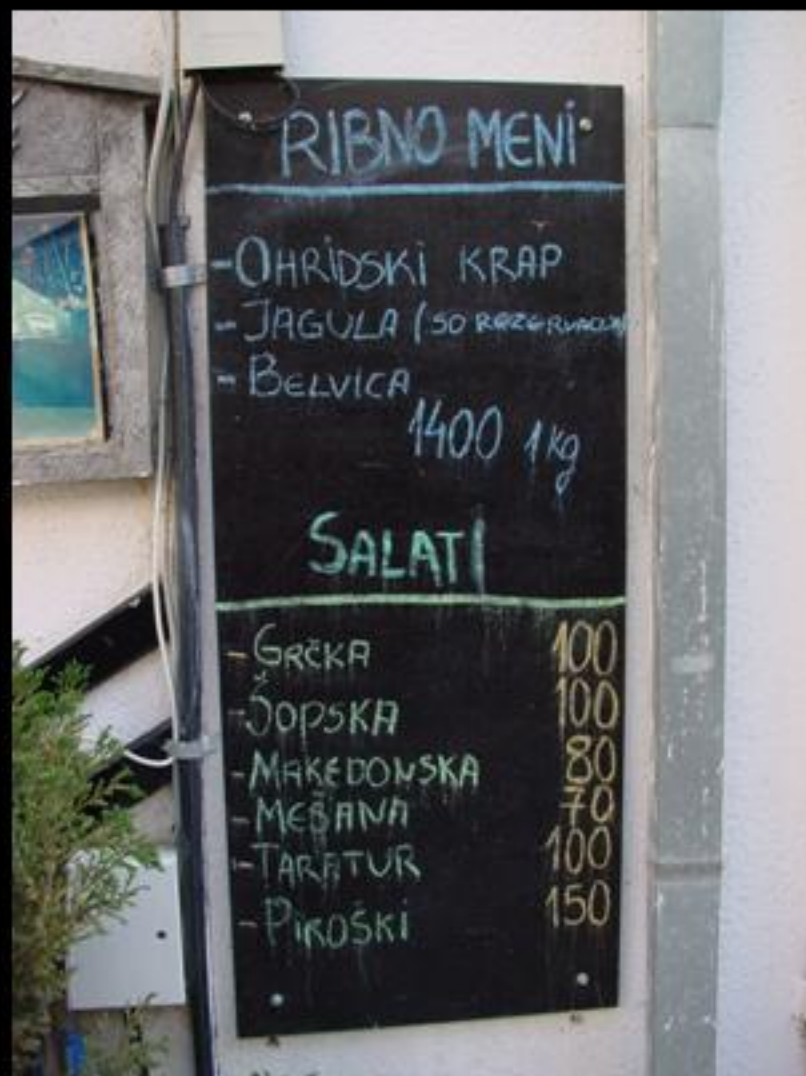 RIBNO MENI
- OHRIDSKI KRAP
- JAGULA (SO REZERVACIJA)
- BELVICA
1400 1kg
SALATI
- GRČKA 100
- ŠOPSKA 100
- MAKEDONSKA 80
- MEŠANA 70
- TARATUR 100
- PIROŠKI 150